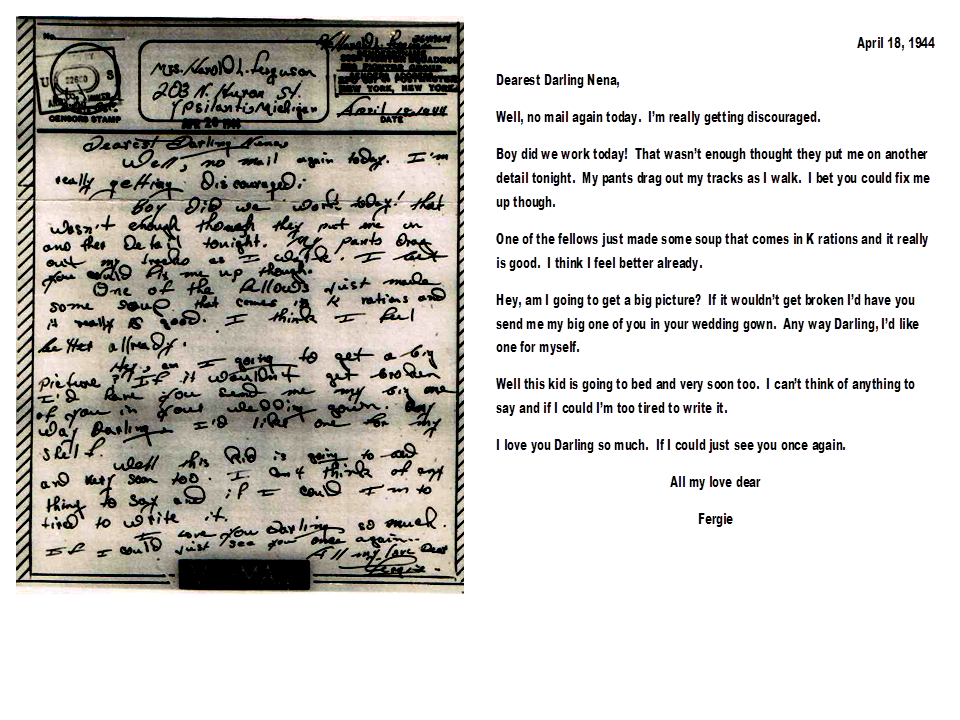 No.
CENSORS STAMP
U S
22600
Mrs. Harold L. Ferguson
203 N. Huron St.
Ypsilanti Michigan
APR 26 1944
Harold L. Ferguson
NEW YORK, NEW YORK
April 18, 1944
DATE
Dearest Darling Nena
Well, no mail again today. I'm
really getting discouraged.
Boy did we work today! that
wasn't enough though they put me on
another detail tonight. My pants drag
out my tracks as I walk. I bet
you could fix me up though.
One of the fellows just made
some soup that comes in K rations and
it really is good. I think I feel
better allready.
Hey, am I going to get a big
picture? If it wouldn't get broken
I'd have you send me my big one
of you in your wedding gown. Any
way Darling I'd like one for my
self.
Well this kid is going to bed
and very soon too. I can't think of any
thing to say and if I could I'm to
tired to write it.
I love you Darling so much.
If I could just see you once again...
All my love Dear
Fergie.
April 18, 1944
Dearest Darling Nena,
Well, no mail again today. I'm really getting discouraged.
Boy did we work today! That wasn't enough thought they put me on another
detail tonight. My pants drag out my tracks as I walk. I bet you could fix me
up though.
One of the fellows just made some soup that comes in K rations and it really
is good. I think I feel better already.
Hey, am I going to get a big picture? If it wouldn't get broken I'd have you
send me my big one of you in your wedding gown. Any way Darling, I'd like
one for myself.
Well this kid is going to bed and very soon too. I can't think of anything to
say and if I could I'm too tired to write it.
I love you Darling so much. If I could just see you once again.
All my love dear
Fergie